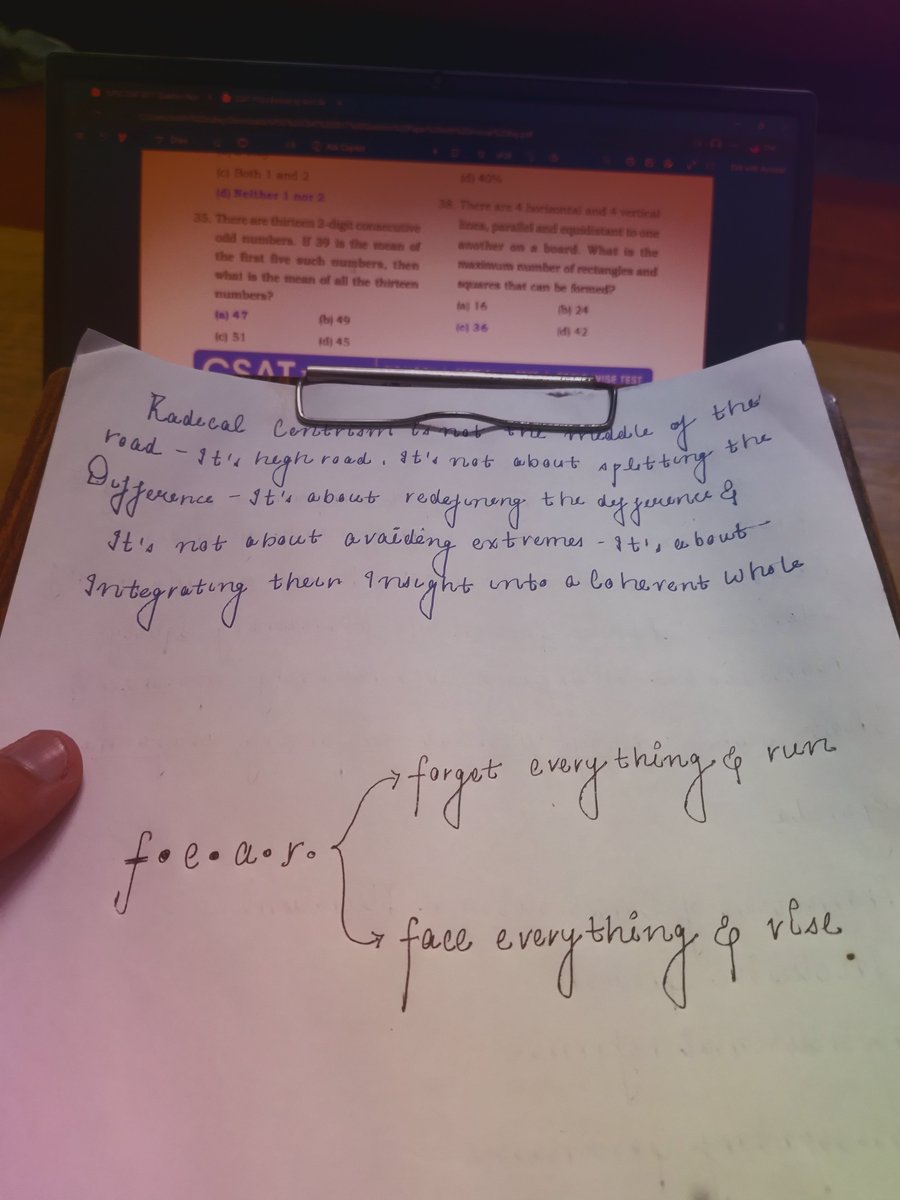 (c) Both 1 and 2
(d) Neither 1 nor 2
35. There are thirteen 2-digit consecutive
odd numbers. If 39 is the mean of
the first five such numbers, then
what is the mean of all the thirteen
numbers?
(a) 47 (b) 49
(c) 51 (d) 45
(d) 40%
38. There are 4 horizontal and 4 vertical
lines, parallel and equidistant to one
another on a board. What is the
maximum number of rectangles and
squares that can be formed?
(a) 16 (b) 24
(c) 36 (d) 42
CSAT
VISE TEST
Radical Centrism is not the middle of the
road - It's high road. It's not about splitting the
Difference - It's about redefining the difference &
It's not about avaiding extremes - It's about
Integrating their Insight into a Coherent Whole
f.e.a.r.
forget everything & run
face everything & rise.